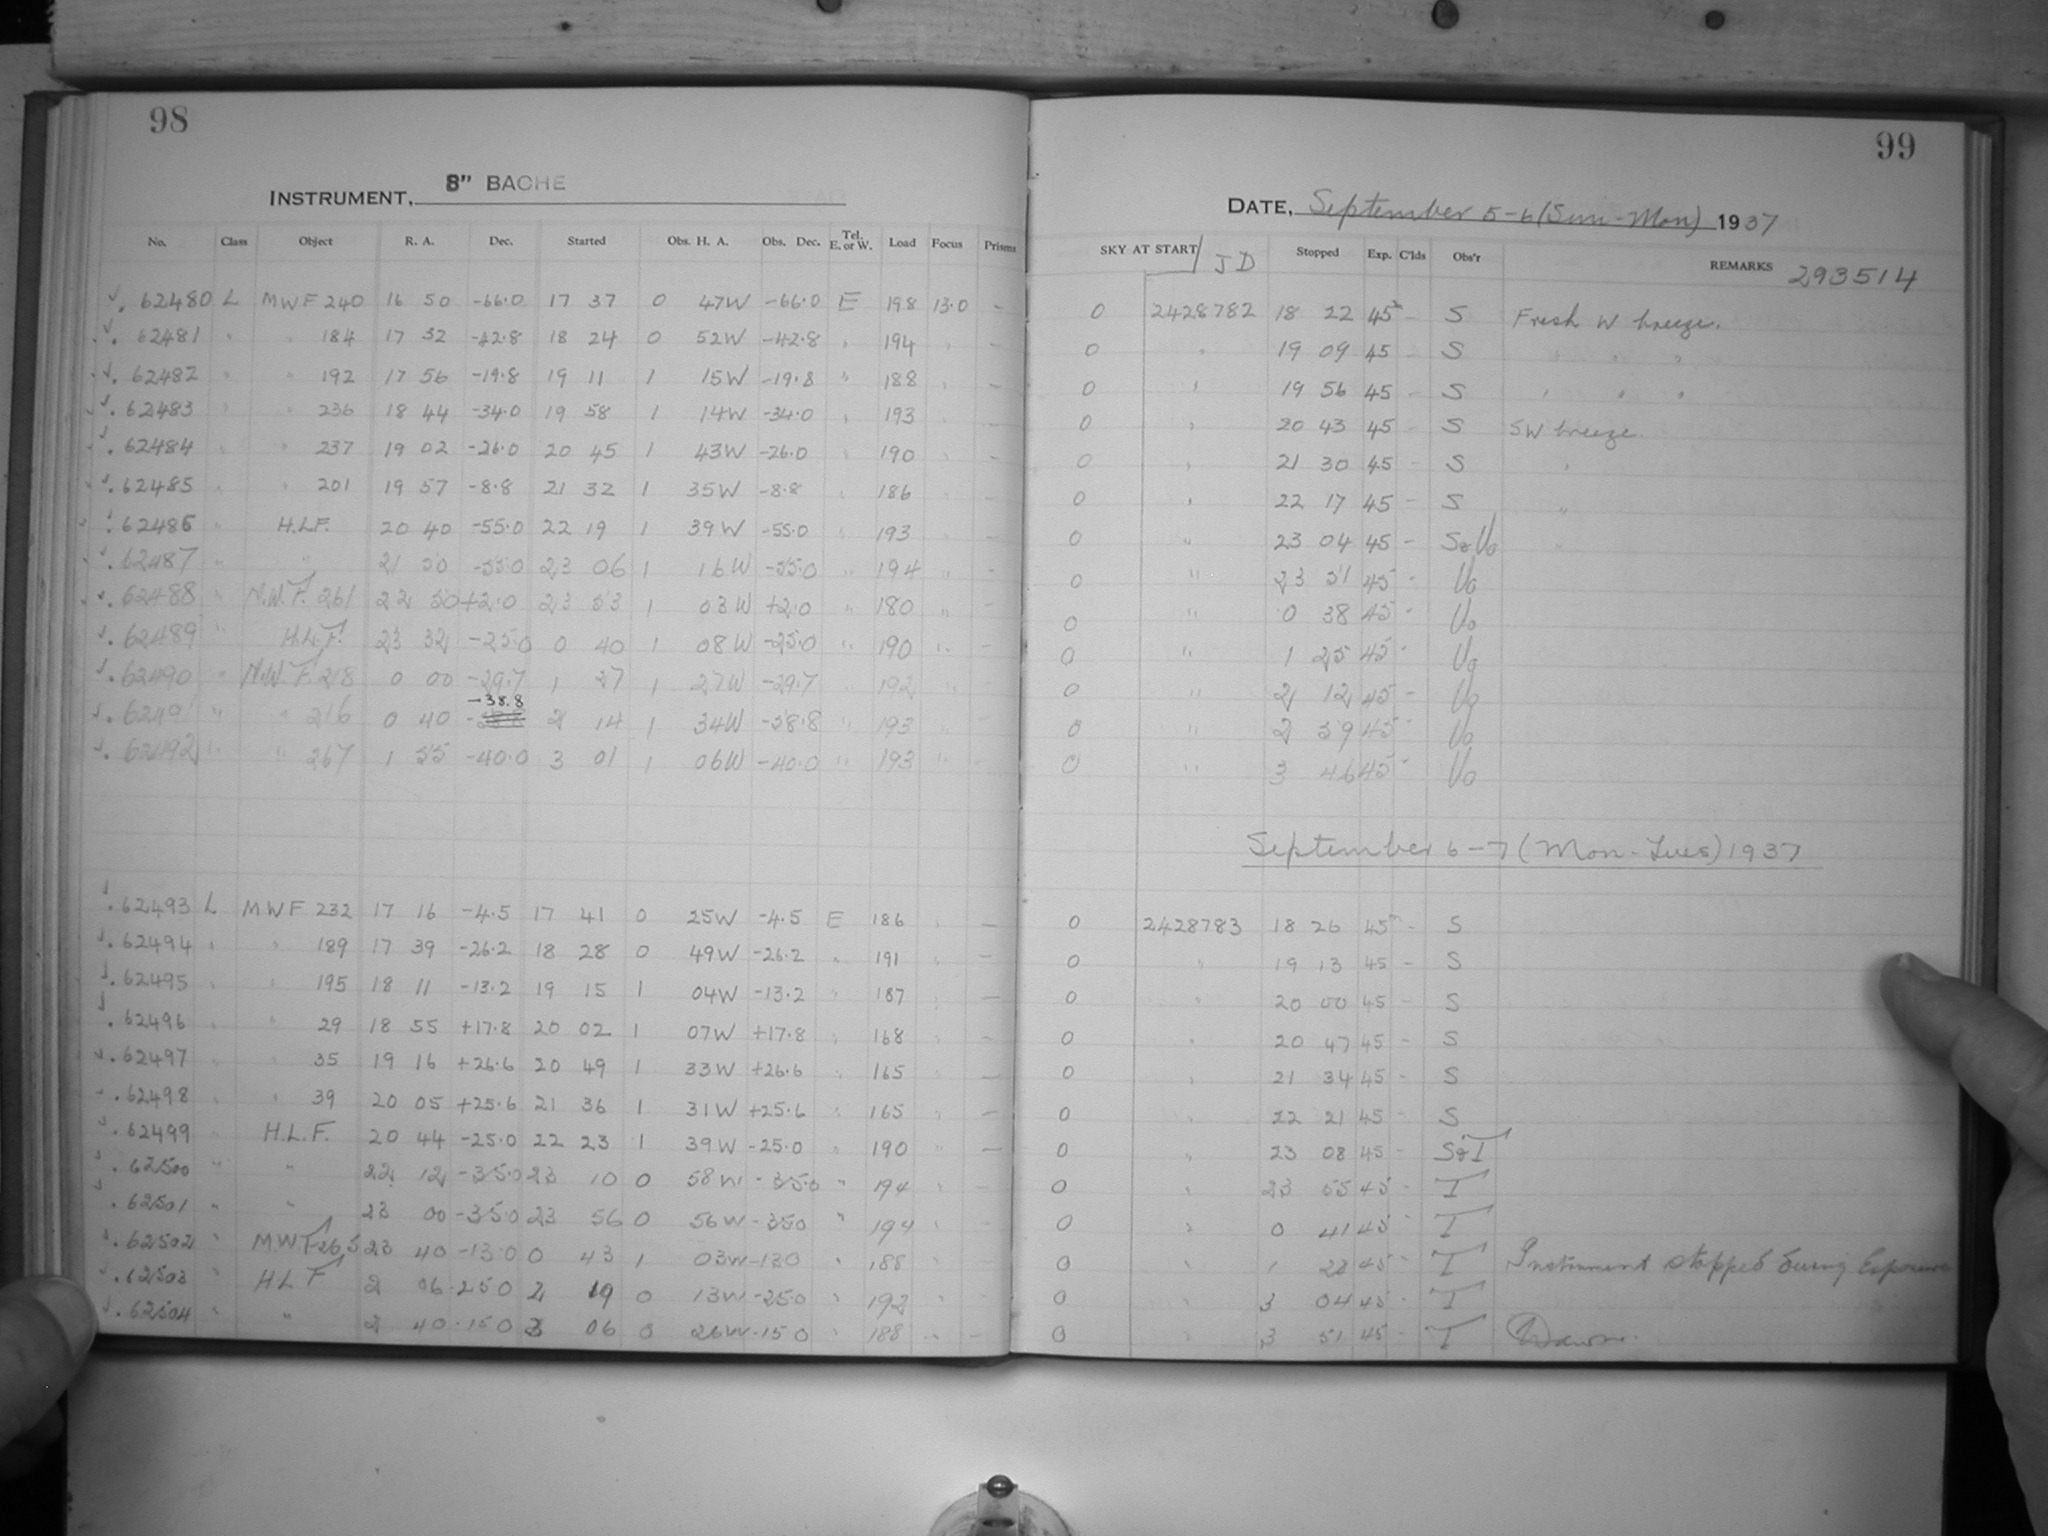 98
INSTRUMENT, 8" BACHE
No. Class Object R. A. Dec. Started Obs. H. A. Obs. Dec. Tel. E. or W. Load Focus Prisms
62480 L MWF 240 16 50 -66.0 17 37 0 47W -66.0 E 198 13.0 -
62481 " " 184 17 32 -42.8 18 24 0 52W -42.8 " 194 " -
62482 " " 192 17 56 -19.8 19 11 1 15W -19.8 " 188 " -
62483 " " 236 18 44 -34.0 19 58 1 14W -34.0 " 193 " -
62484 " " 237 19 02 -26.0 20 45 1 43W -26.0 " 190 " -
62485 " " 201 19 57 -8.8 21 32 1 35W -8.8 " 186 " -
62486 " H.L.F. 20 40 -55.0 22 19 1 39W -55.0 " 193 " -
62487 " " 21 50 -55.0 23 06 1 16W -55.0 " 194 " -
62488 " M.W.F. 261 22 50 +2.0 23 53 1 03W +2.0 " 180 " -
62489 " H.L.F. 23 32 -25.0 0 40 1 08W -25.0 " 190 " -
62490 " M.W.F. 218 0 00 -29.7 1 27 1 27W -29.7 " 192 " -
62491 " " 216 0 40 -38.8 2 14 1 34W -38.8 " 193 " -
62492 " " 267 1 55 -40.0 3 01 1 06W -40.0 " 193 " -
62493 L MWF 232 17 16 -4.5 17 41 0 25W -4.5 E 186 " -
62494 " " 189 17 39 -26.2 18 28 0 49W -26.2 " 191 " -
62495 " " 195 18 11 -13.2 19 15 1 04W -13.2 " 187 " -
62496 " " 29 18 55 +17.8 20 02 1 07W +17.8 " 168 " -
62497 " " 35 19 16 +26.6 20 49 1 33W +26.6 " 165 " -
62498 " " 39 20 05 +25.6 21 36 1 31W +25.6 " 165 " -
62499 " H.L.F. 20 44 -25.0 22 23 1 39W -25.0 " 190 " -
62500 " " 22 12 -35.0 23 10 0 58W -35.0 " 194 " -
62501 " " 23 00 -35.0 23 56 0 56W -35.0 " 194 " -
62502 " M.W.F. 23 40 -13.0 0 43 1 03W -13.0 " 188 " -
62503 " H L F 2 06 -25.0 2 19 0 13W -25.0 " 192 " -
62504 " " 2 40 -15.0 3 06 0 26W -15.0 " 188 " -
99
DATE, September 5-6 (Sun-Mon) 1937
SKY AT START / JD Stopped Exp. C'lds Obs'r REMARKS 293514
0 2428782 18 22 45 - S Fresh W breeze.
0 " 19 09 45 - S " " "
0 " 19 56 45 - S " " "
0 " 20 43 45 - S SW breeze.
0 " 21 30 45 - S "
0 " 22 17 45 - S "
0 " 23 04 45 - S&Vo "
0 " 23 51 45 - Vo
0 " 0 38 45 - Vo
0 " 1 25 45 - Vo
0 " 2 12 45 - Vo
0 " 2 59 45 - Vo
0 " 3 46 45 - Vo
September 6-7 (Mon-Tues) 1937
0 2428783 18 26 45m - S
0 " 19 13 45 - S
0 " 20 00 45 - S
0 " 20 47 45 - S
0 " 21 34 45 - S
0 " 22 21 45 - S
0 " 23 08 45 - S&T
0 " 23 55 45 - T
0 " 0 41 45 - T
0 " 1 28 45 - T Instrument stopped during Exposure
0 " 3 04 45 - T
0 " 3 51 45 - T Dawn.